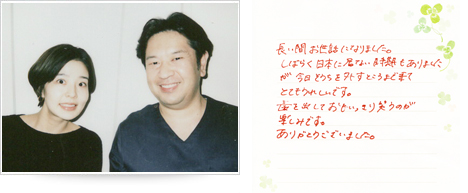 長い間お世話になりました。
しばらく日本に居ない時期もありました
が今日こうしを外すところまで来て
とてもうれしいです。
歯を出しておもいっきり笑うのが
楽しみです。
ありがとうございました。